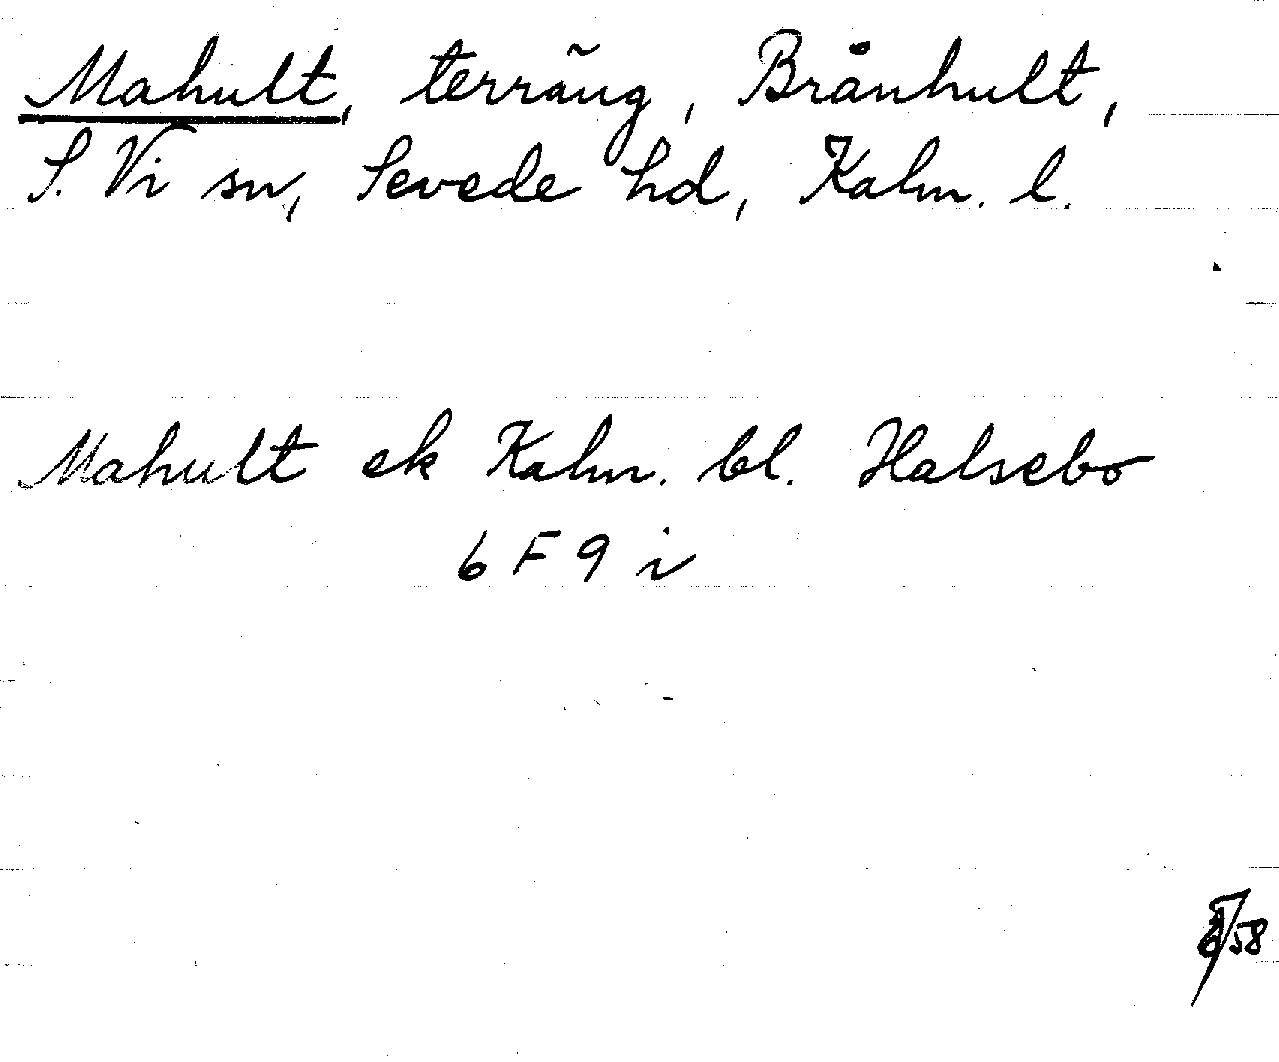 Mahult, terräng, Brånhult,
S. Vi sn, Sevede hd, Kalm. l.
Mahult ek Kalm. bl. Halsebo
6 F 9 i
58